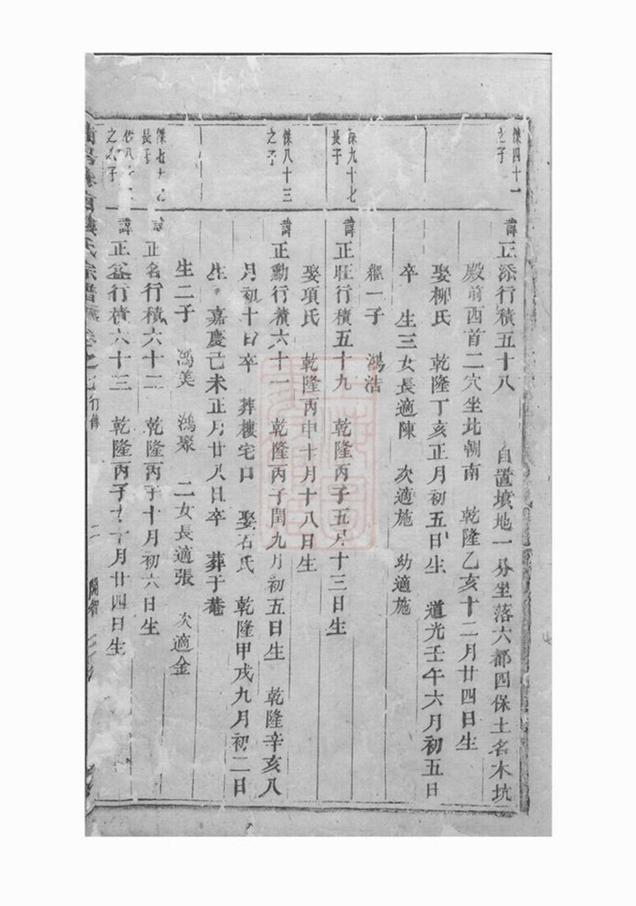 傑四十一
之子
諱正添行積五十八 自置墳地一分坐落六都四保土名木坑
殿前西首二穴坐北朝南 乾隆乙亥十二月廿四日生
娶柳氏 乾隆丁亥正月初五日生 道光壬午六月初五日
卒 生三女長適陳 次適施 幼適施
繼一子 鴻浩
傑九十七
長子
諱正旺行積五十九 乾隆丙子五月十三日生
娶項氏 乾隆丙申十月十八日生
傑八十三
之子
諱正勳行積六十一 乾隆丙子閏九月初五日生 乾隆辛亥八
月初十日卒 葬樓宅口 娶石氏 乾隆甲戌九月初二日
生 嘉慶己未正月廿八日卒 葬于菴
生二子 鴻美 鴻聚 二女長適張 次適金
傑七十
長子
諱正名行積六十二 乾隆丙子十月初六日生
傑八
之子
諱正 行積六十三 乾隆丙子 月廿四日生
氏宗譜 卷之 行傳